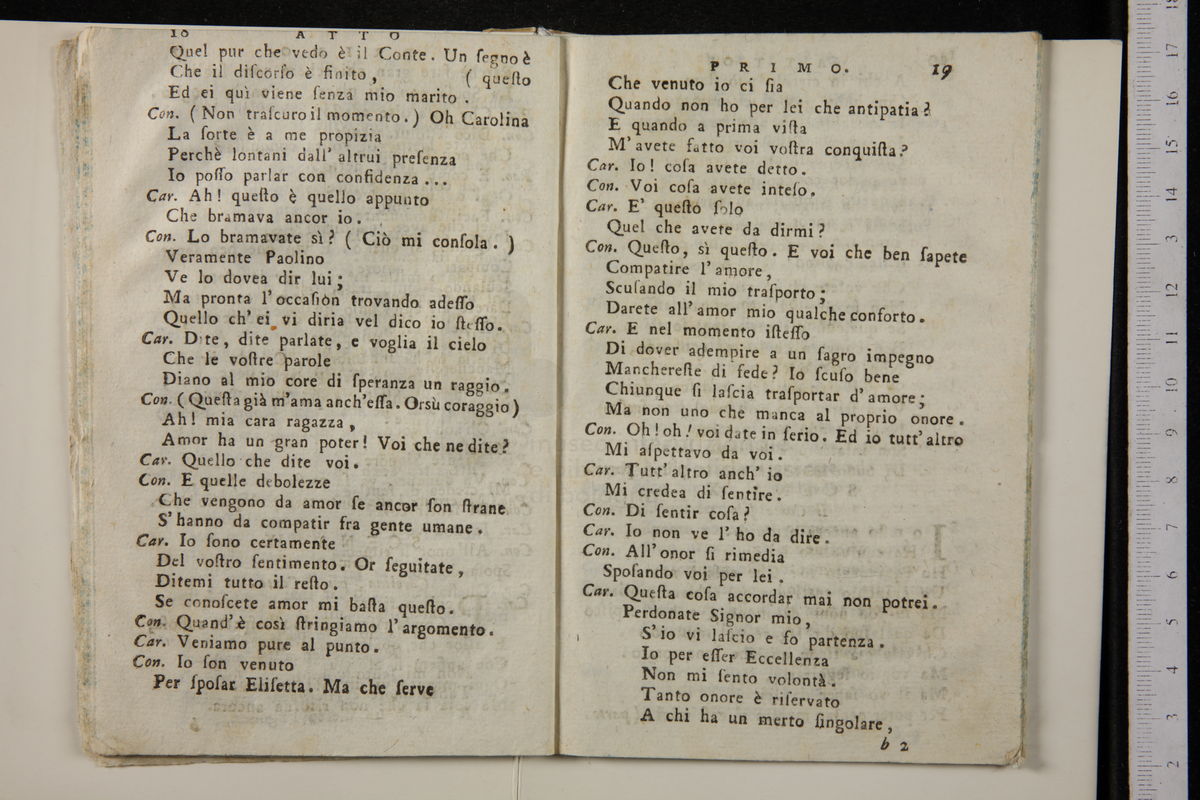 10 ATTO
Quel pur che vedo è il Conte. Un ſegno è
Che il diſcorſo è finito, ( queſto
Ed ei quì viene ſenza mio marito.
Con. (Non traſcuro il momento.) Oh Carolina
La ſorte è a me propizia
Perchè lontani dall' altrui preſenza
Io poſſo parlar con confidenza ...
Car. Ah! queſto è quello appunto
Che bramava ancor io.
Con. Lo bramavate sì? ( Ciò mi conſola. )
Veramente Paolino
Ve lo dovea dir lui;
Ma pronta l'occaſiòn trovando adeſſo
Quello ch' ei vi diria vel dico io ſteſſo.
Car. Dite, dite parlate, e voglia il cielo
Che le voſtre parole
Diano al mio core di ſperanza un raggio.
Con. (Queſta già m'ama anch'eſſa. Orsù coraggio)
Ah! mia cara ragazza,
Amor ha un gran poter! Voi che ne dite?
Car. Quello che dite voi.
Con. E quelle debolezze
Che vengono da amor ſe ancor ſon ſtrane
S'hanno da compatir fra gente umane.
Car. Io ſono certamente
Del voſtro ſentimento. Or ſeguitate,
Ditemi tutto il reſto.
Se conoſcete amor mi baſta queſto.
Con. Quand'è così ſtringiamo l'argomento.
Car. Veniamo pure al punto.
Con. Io ſon venuto
Per ſpoſar Eliſetta. Ma che ſerve
PRIMO. 19
Che venuto io ci ſia
Quando non ho per lei che antipatia?
E quando a prima viſta
M'avete fatto voi voſtra conquiſta?
Car. Io! coſa avete detto.
Con. Voi coſa avete inteſo.
Car. E' queſto ſolo
Quel che avete da dirmi?
Con. Queſto, sì queſto. E voi che ben ſapete
Compatire l'amore,
Scuſando il mio traſporto;
Darete all'amor mio qualche conforto.
Car. E nel momento iſteſſo
Di dover adempire a un ſagro impegno
Manchereſte di fede? Io ſcuſo bene
Chiunque ſi laſcia traſportar d'amore;
Ma non uno che manca al proprio onore.
Con. Oh! oh! voi date in ſerio. Ed io tutt'altro
Mi aſpettavo da voi.
Car. Tutt'altro anch' io
Mi credea di ſentire.
Con. Di ſentir coſa?
Car. Io non ve l'ho da dire.
Con. All'onor ſi rimedia
Spoſando voi per lei.
Car. Queſta coſa accordar mai non potrei.
Perdonate Signor mio,
S'io vi laſcio e fo partenza.
Io per eſſer Eccellenza
Non mi ſento volontà.
Tanto onore è riſervato
A chi ha un merto ſingolare,
b 2
17
16
15
14
3
12
11
10
9
8
7
6
5
4
3
2